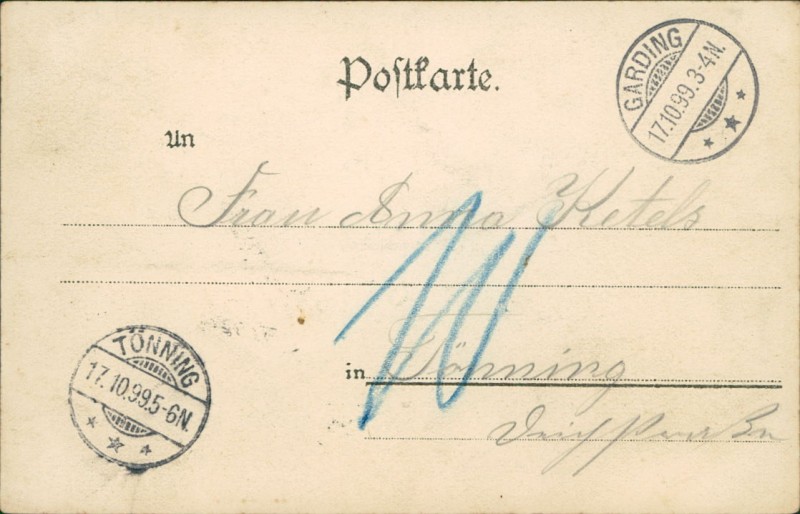 Postkarte.
GARDING
17.10.99.3-4N.
An
Frau Anna Ketels
10
in Tönning
TÖNNING
17.10.99.5-6N.